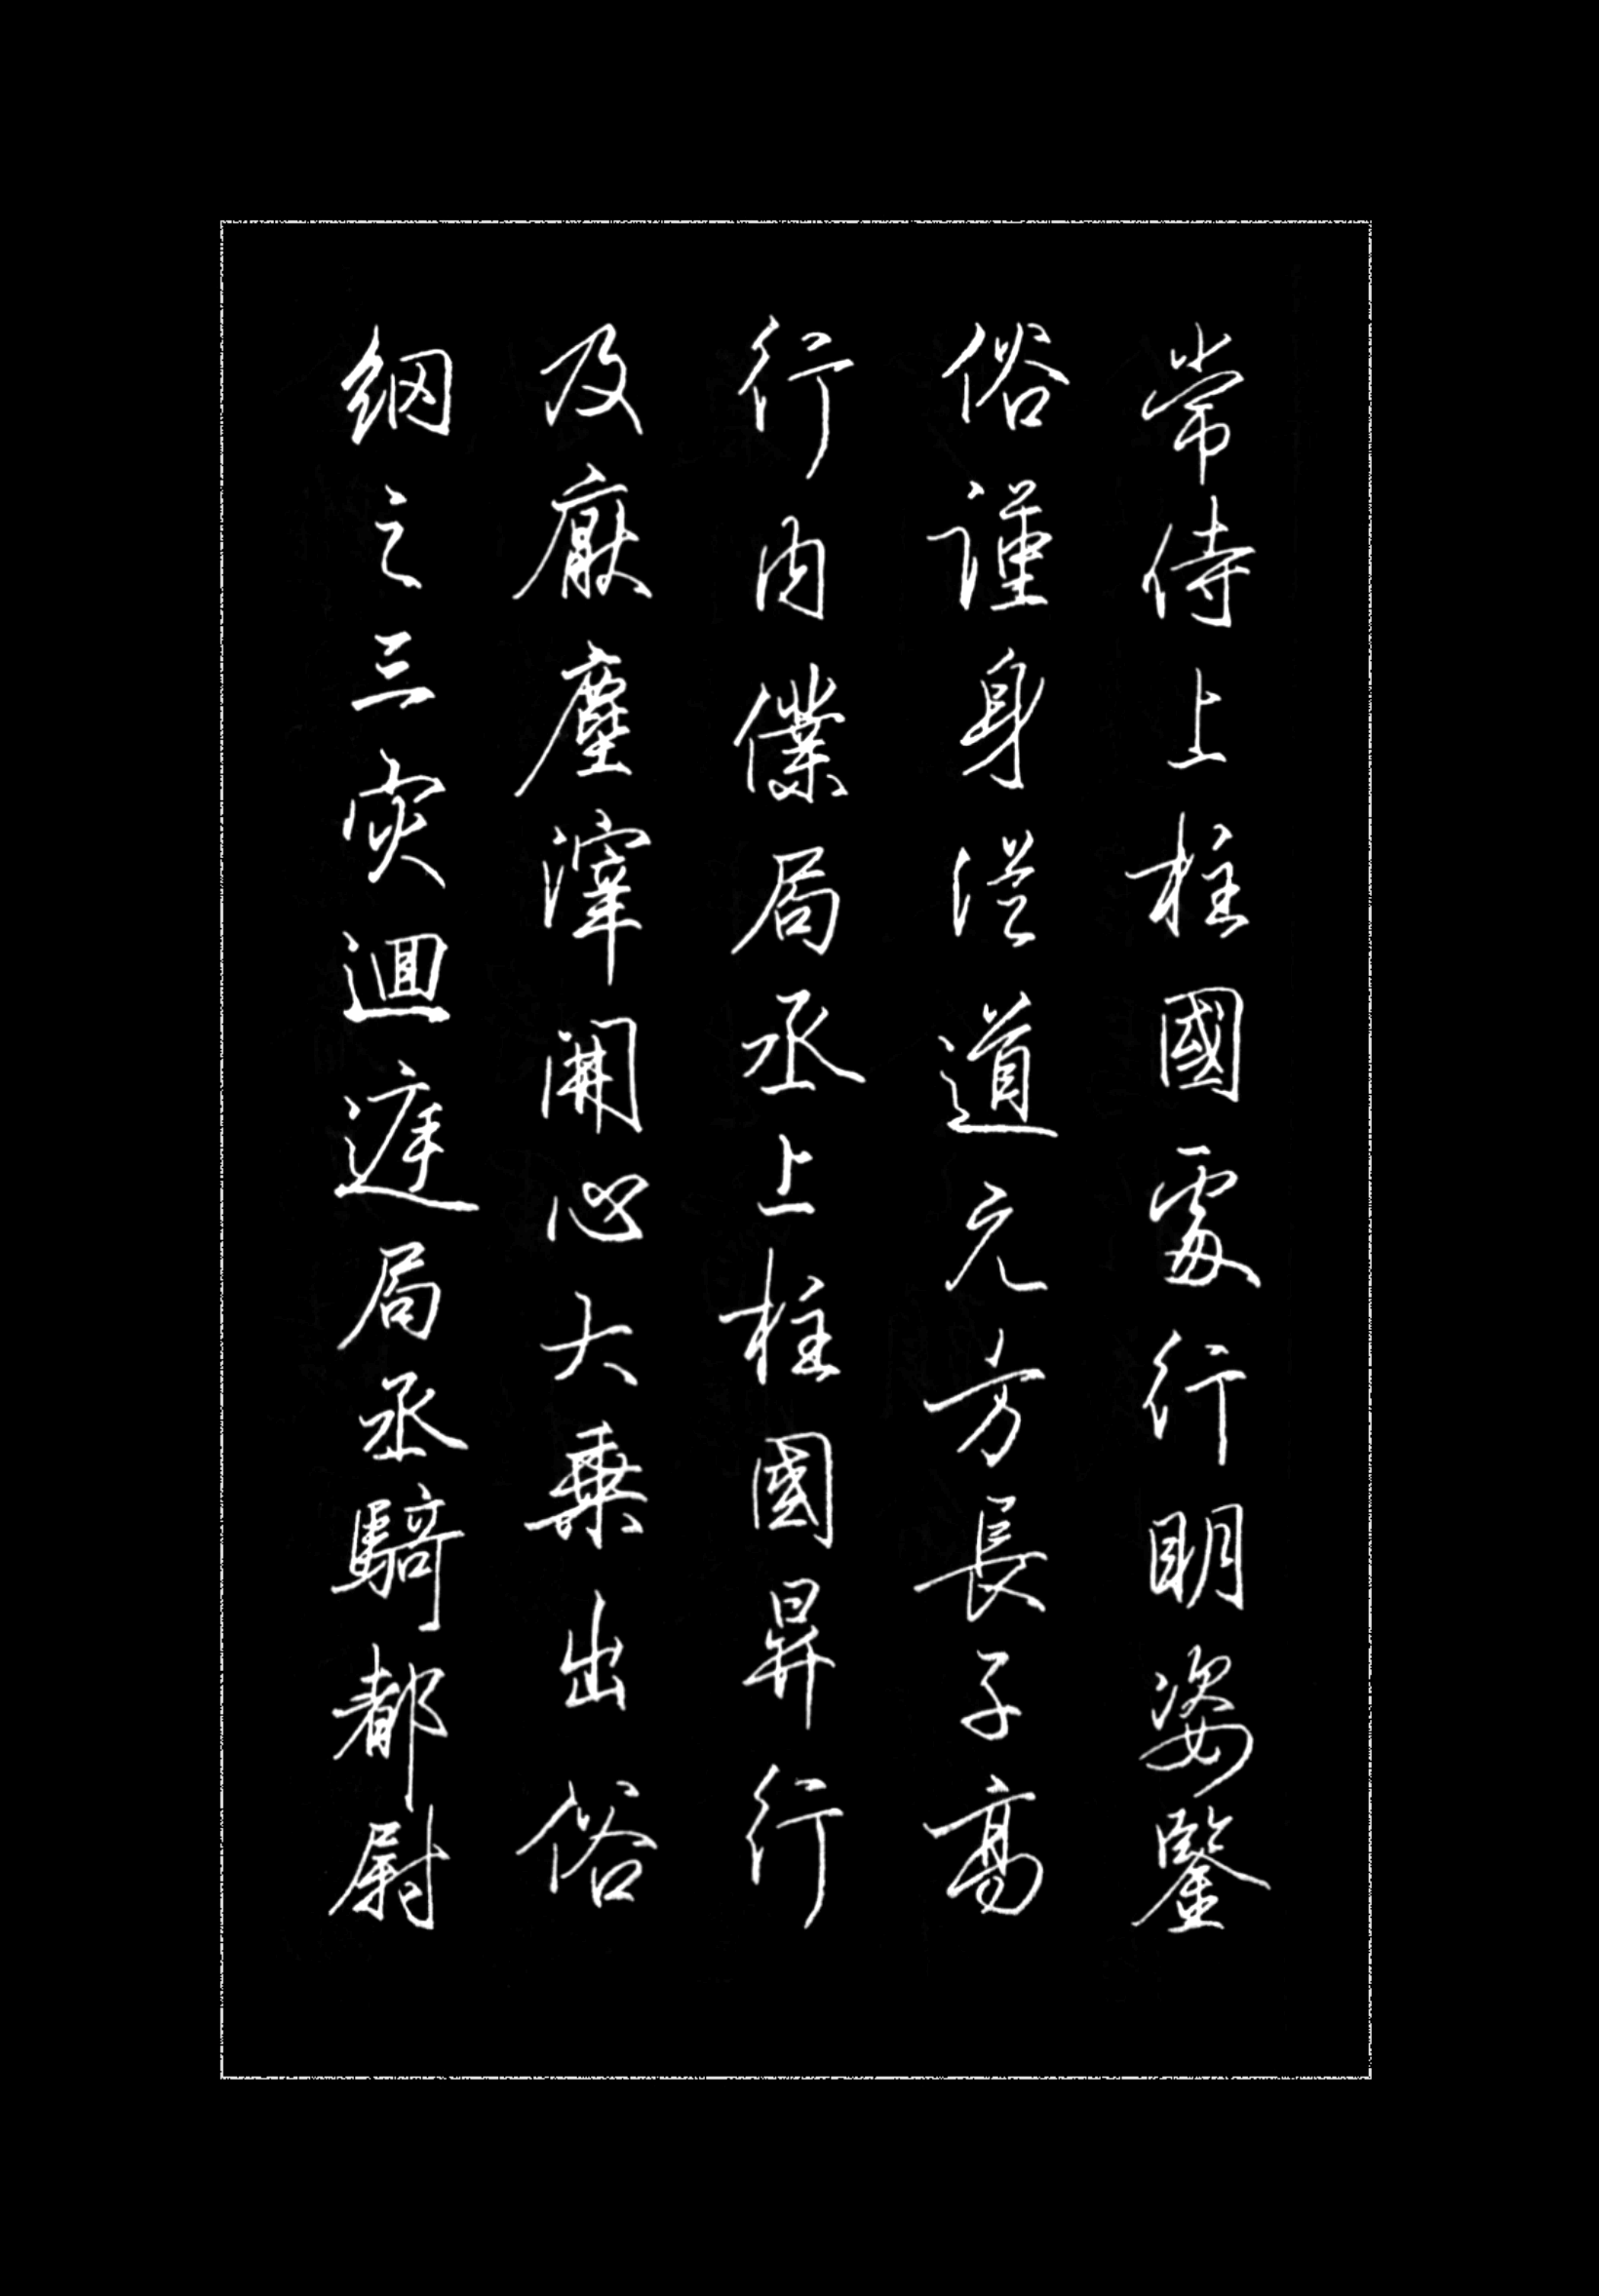 常侍上柱國處行明姿鑒
俗謹身從道元方長子高
行內僕局丞上柱國昇行
及厭塵滓開心大乘出俗
網之三灾迴遮局丞騎都尉